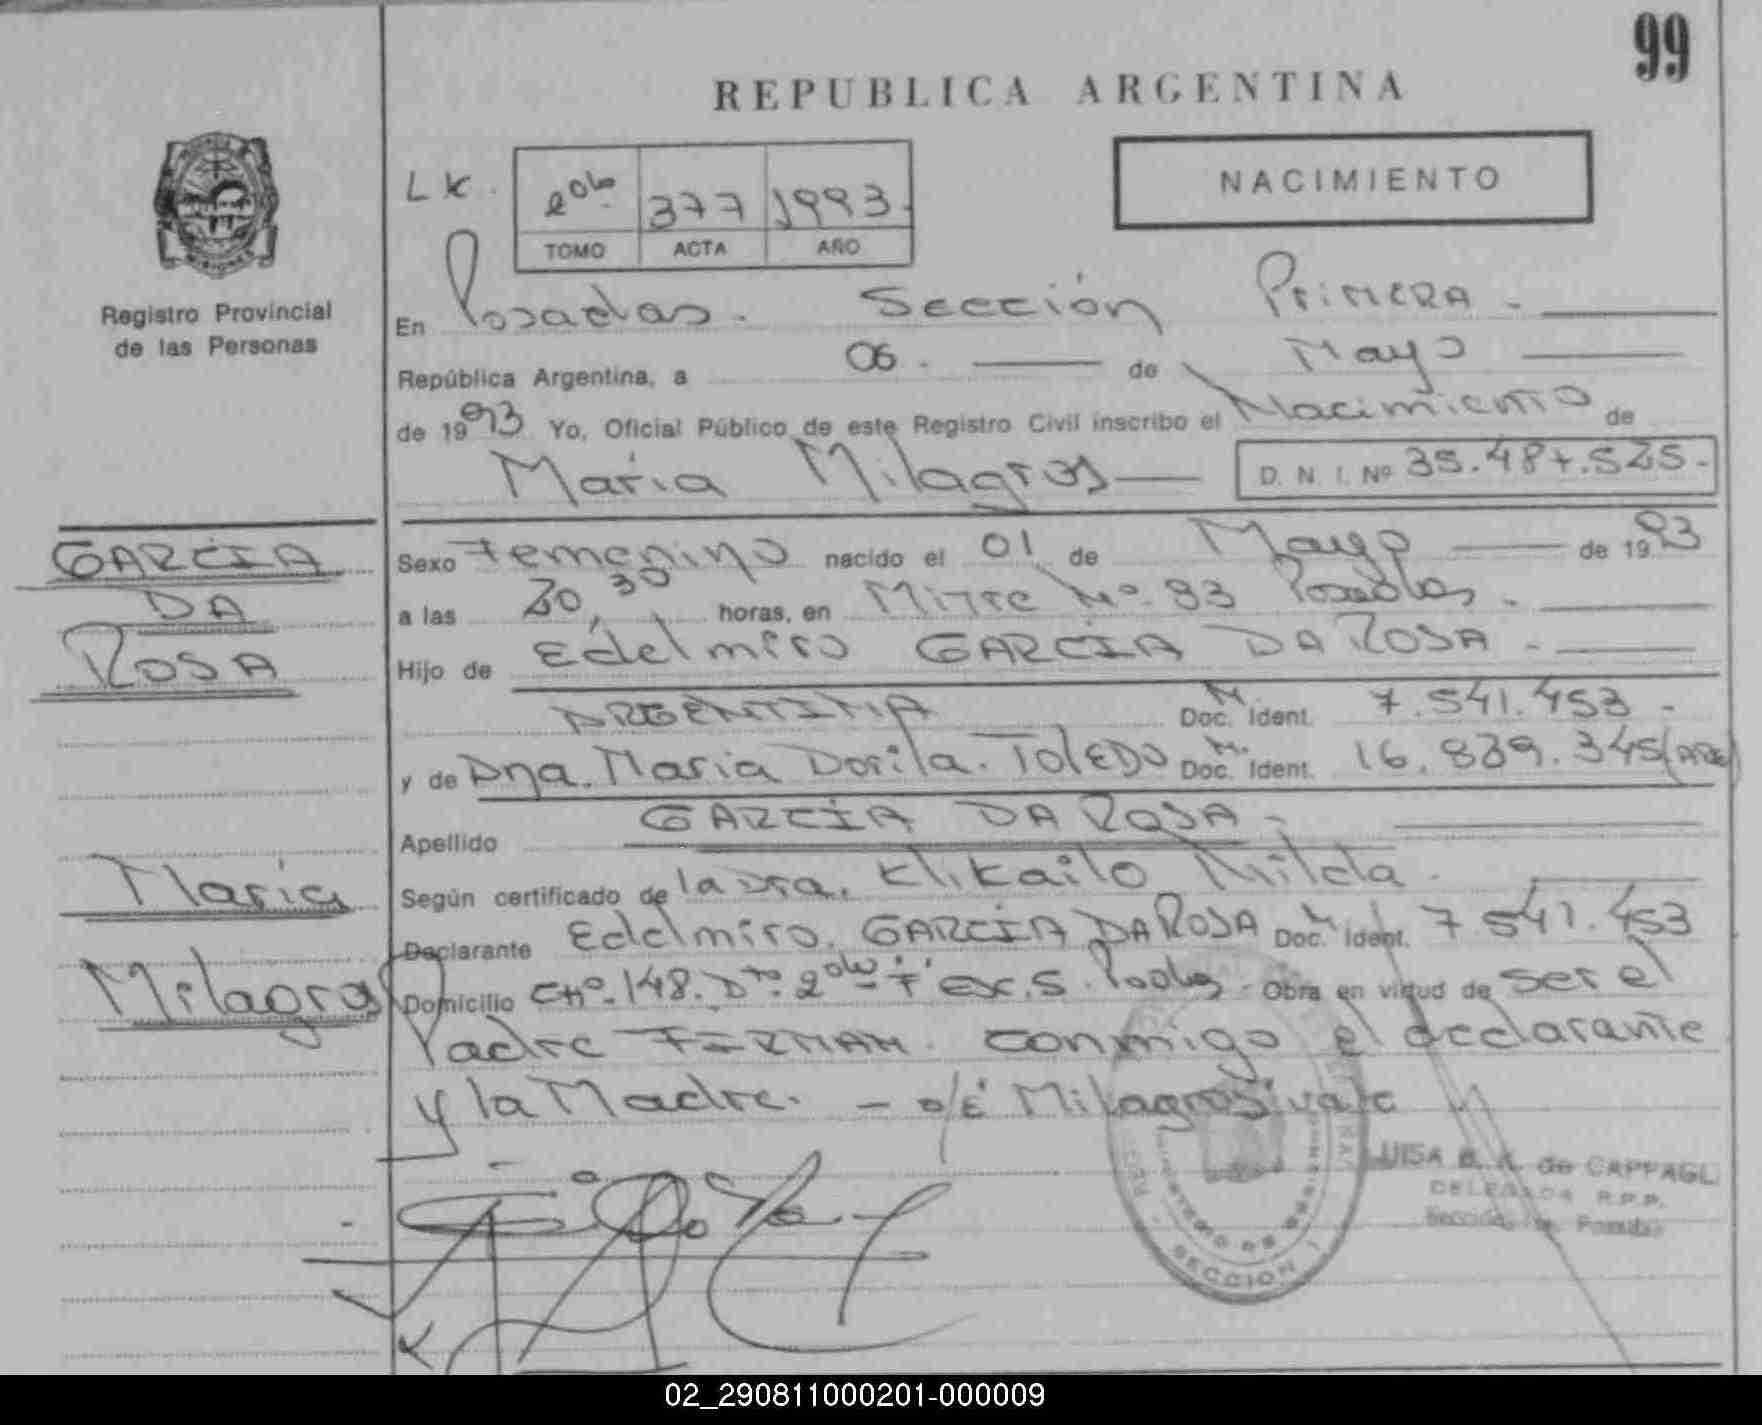 99
REPUBLICA ARGENTINA
NACIMIENTO
LK.
2do. 377 1993.
TOMO ACTA AÑO
MISIONES
Registro Provincial
de las Personas
En Posadas. Sección PRIMERA -
República Argentina, a 06. de Mayo
de 1993 Yo, Oficial Público de este Registro Civil inscribo el Nacimiento de
María Milagros D. N. I. Nº 35.487.525.-
GARCIA
DA
ROSA
María
Milagros
Sexo Femenino nacido el 01 de Mayo de 1993
a las 20,30 horas, en Mitre Nº. 93 Posadas.
Hijo de Edelmiro GARCIA DA ROSA -
ARGENTINA M. Doc. Ident. 7.541.453 -
y de Dña. Maria Dorila. TOLEDO M. Doc. Ident. 16.839.345(ARG)
Apellido GARCIA DA ROSA -
Según certificado de la Dra. Milda.
Declarante Edelmiro. GARCIA DA ROSA Doc. M Ident. 7.541.453
Domicilio CHº. 148. Dto. 2do "F" Ex. S. Pdas. Obra en virtud de ser el
Padre FIRMAN conmigo el declarante
y la Madre. - s/é Milagros: vale
LUISA B. de CAPPAGLI
DELEGADA R.P.P.
SECCION 1
02_290811000201-000009